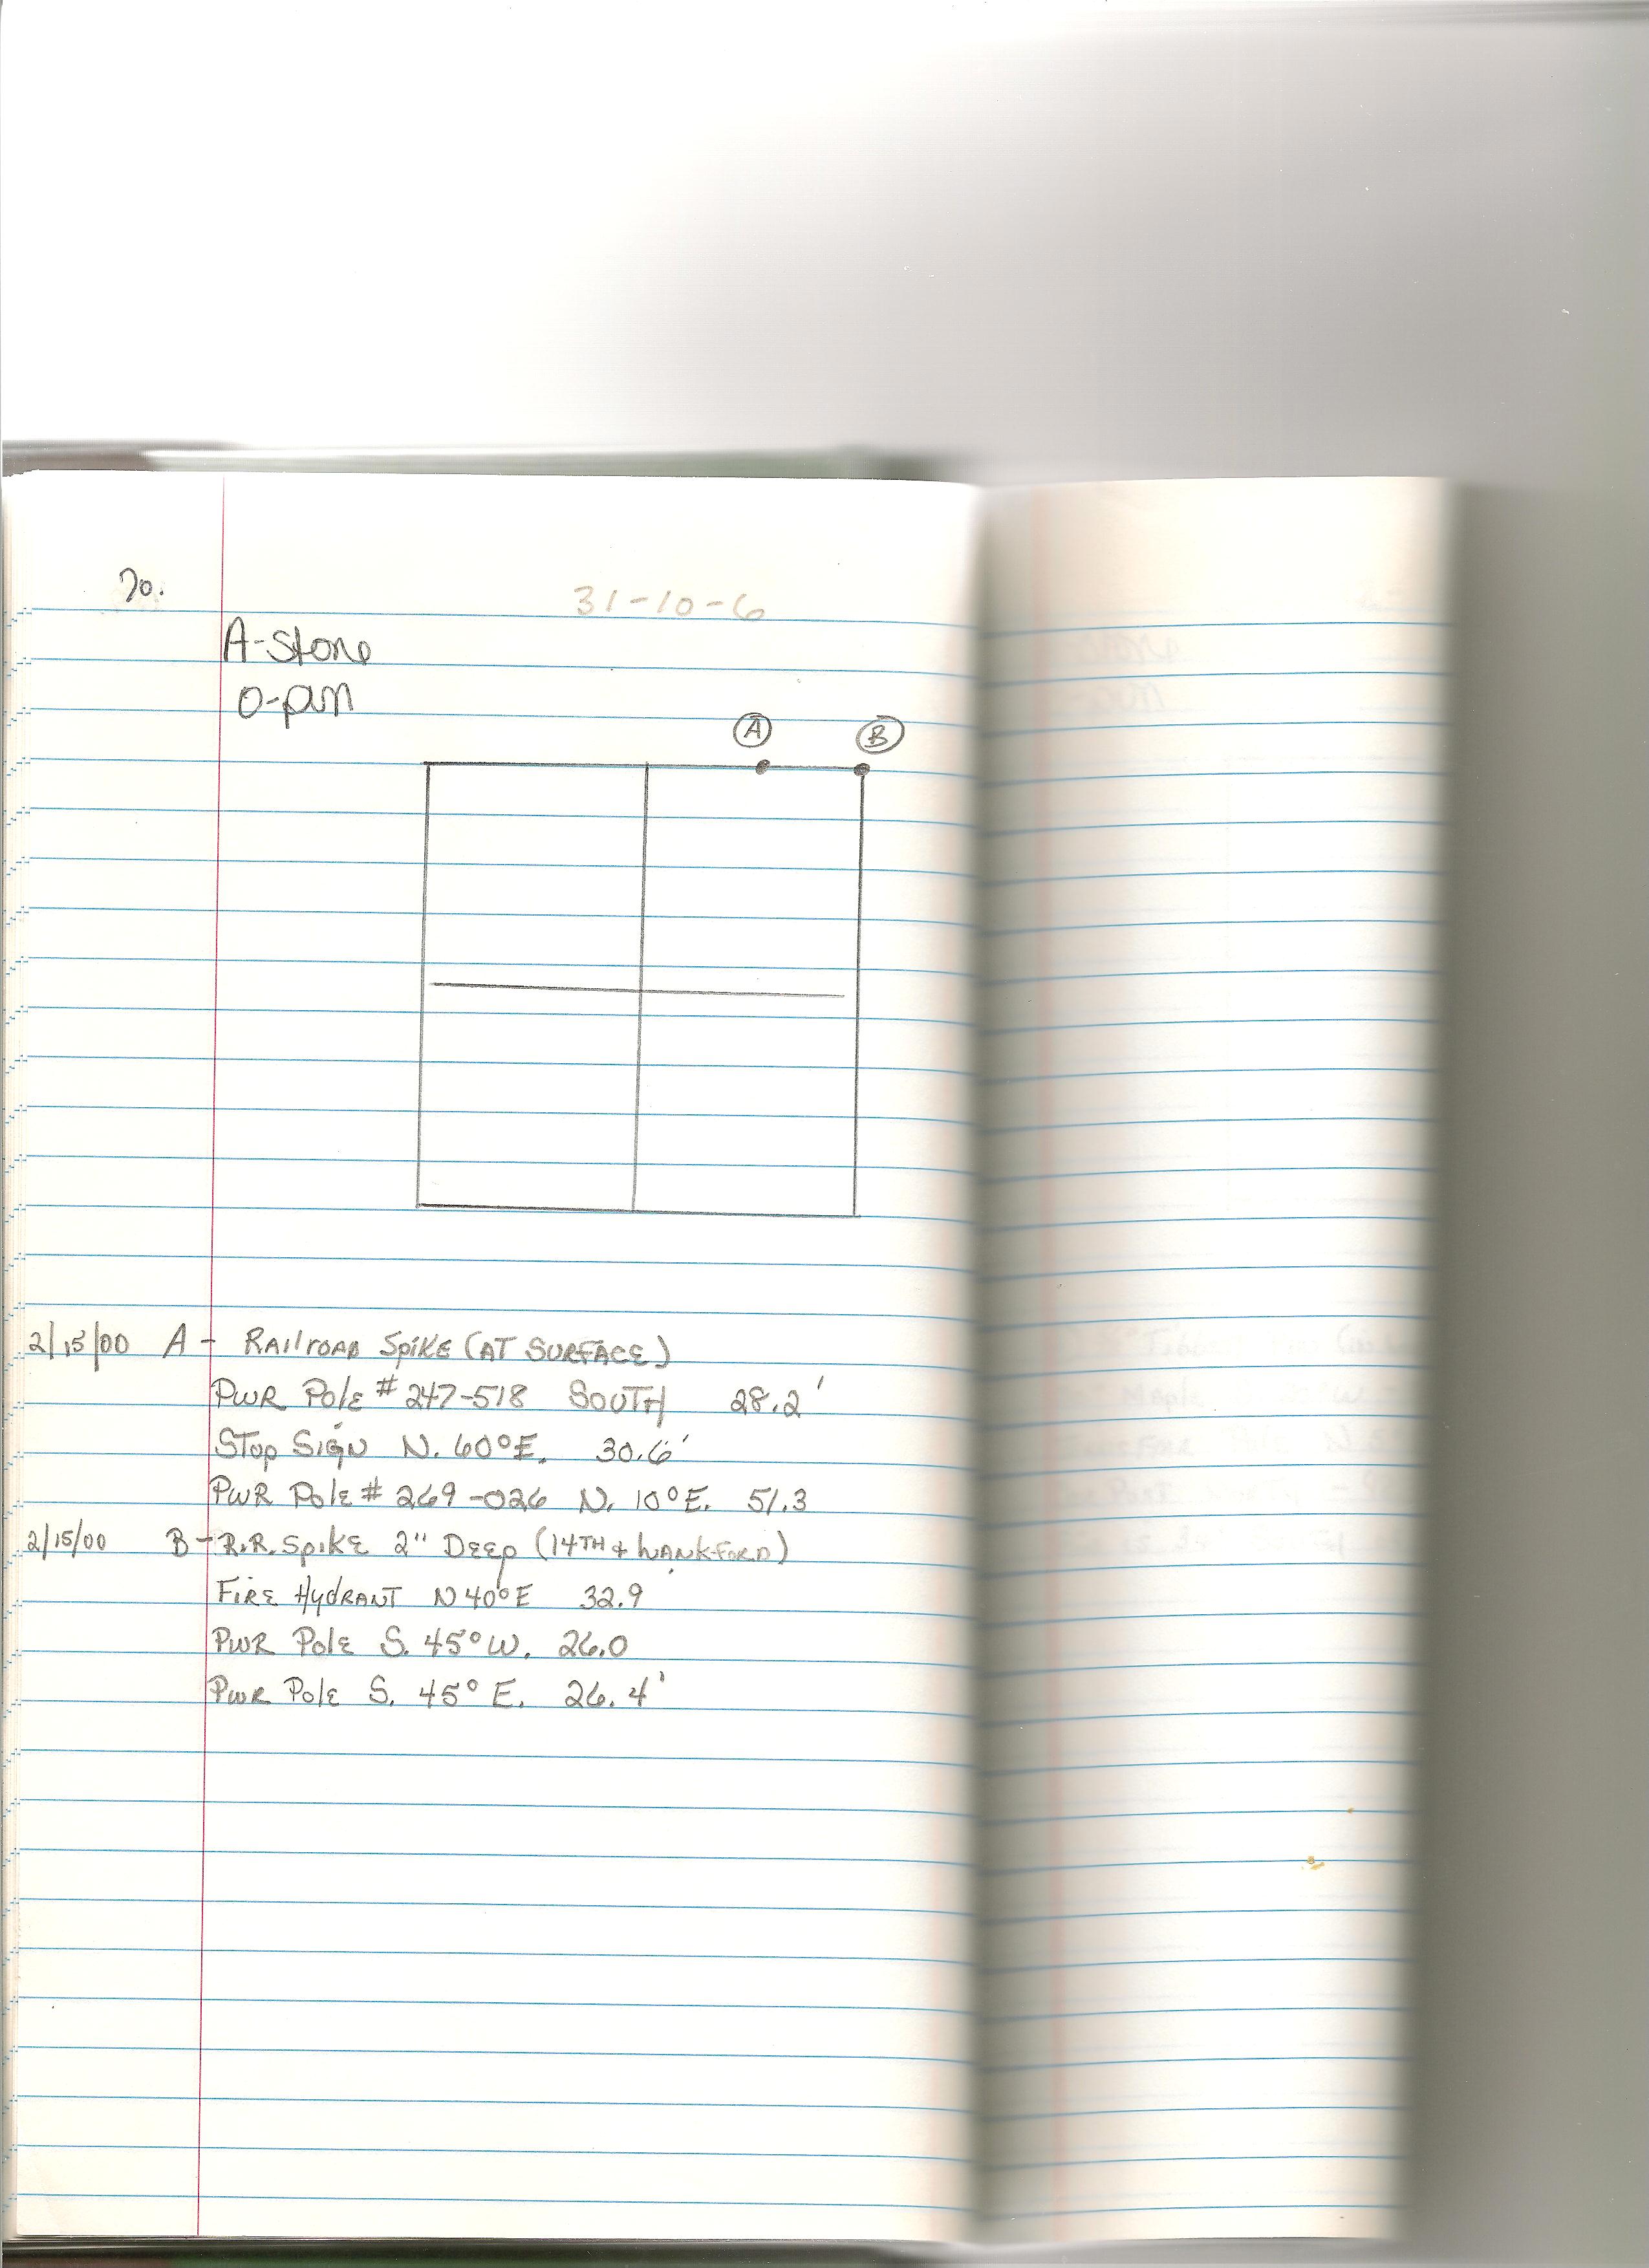 70.
31-10-6
A-stone
O-pin
A B
2/15/00 A - RAilroAD SpiKE (AT SURFACE)
PWR PolE # 247-518 SOUTH 28.2'
STop SiGN N. 60°E. 30.6'
PWR PolE # 269-026 N. 10°E. 51.3
2/15/00 B - R.R. SpiKE 2" DEEp (14TH & LANKFORD)
FiRE HydRANT N 40°E 32.9
PWR PolE S. 45° W. 26.0
PWR PolE S. 45° E. 26.4'